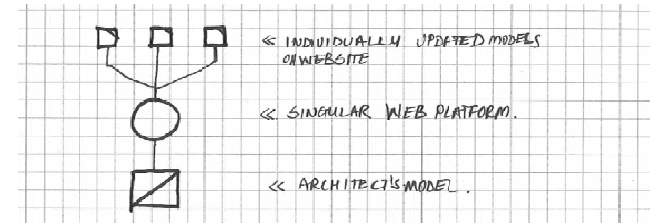 << INDIVIDUALLY UPDATED MODELS
ON WEBSITE
<< SINGULAR WEB PLATFORM.
<< ARCHITECT'S MODEL.